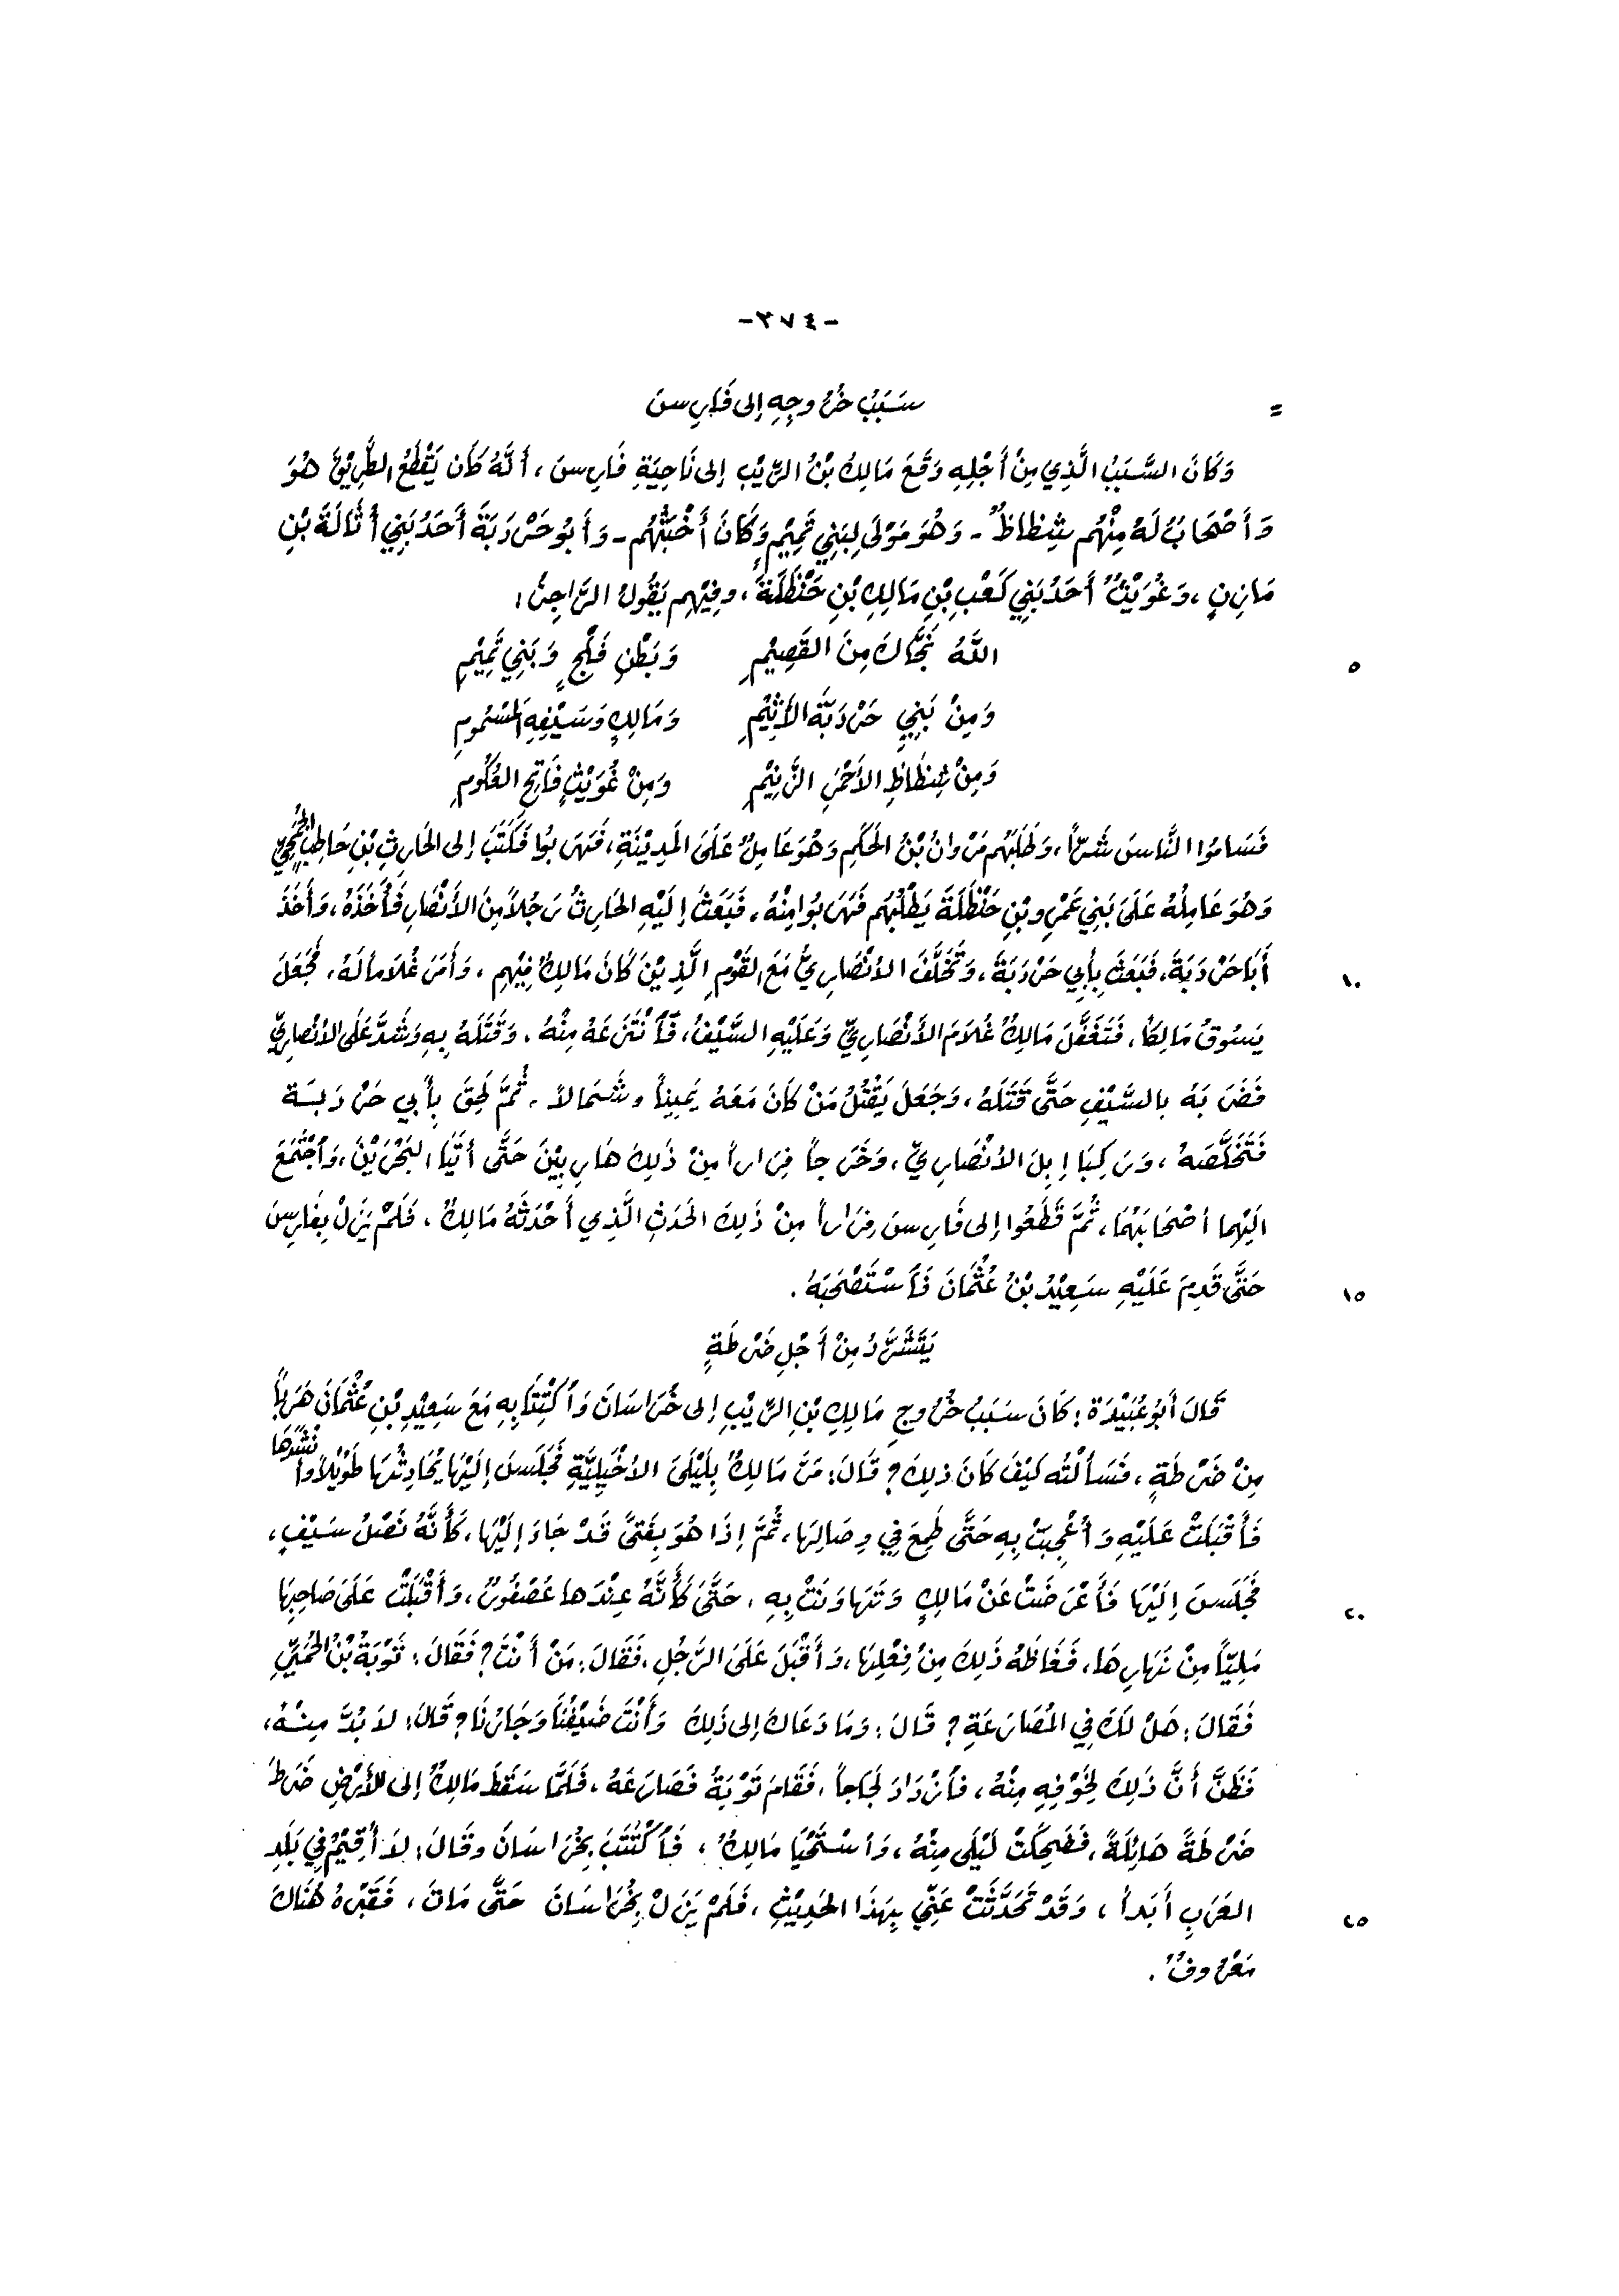 -٣٧٤-
= سَبَبُ خُرُوجِهِ إلى فَارِسَ
وَكَانَ السَّبَبُ الَّذِي مِنْ أَجْلِهِ وَقَعَ مَالِكُ بْنُ الرَّيْبِ إلى نَاحِيَةِ فَارِسَ ، أَنَّهُ كَانَ يَقْطَعُ الطَّرِيْقَ هُوَ
وَأَصْحَابٌ لَهُ مِنْهُم شِظَاظٌ - وَهُوَ مَوْلَى لِبَنِي تَمِيْمٍ وَكَانَ أَخْبَثَهُم - وَأَبُو حَرْدَبَةَ أَحَدُ بَنِي أُثَالَةَ بْنِ
مَازِنٍ ، وَغُوَيْثٌ أَحَدُ بَنِي كَعْبِ بْنِ مَالِكِ بْنِ حَنْظَلَةَ ، وفِيْهِم يَقُولُ الرَّاجِزُ :
اللَّهُ نَجَّاكَ مِنَ القَصِيْمِ وَبَطْنِ فَلْجٍ وَبَنِي تَمِيْمِ
٥
وَمِنْ بَنِي حَرْدَبَةَ الأَثِيْمِ وَمَالِكٍ وَسَيْفِهِ المَسْمُومِ
وَمِنْ شِظَاظِ الأَحْمَرِ الزَّنِيْمِ وَمِنْ غُوَيْثٍ فَاتِحِ العُكُومِ
فَسَامُوا النَّاسَ شَرّاً ، وَطَلَبَهُم مَرْوَانُ بْنُ الحَكَمِ وَهُوَ عَامِلٌ عَلَى المَدِيْنَةِ ، فَهَرَبُوا فَكَتَبَ إلى الحَارِثِ بْنِ حَاطِبٍ الجُمَحِيِّ
وَهُوَ عَامِلُهُ عَلَى بَنِي عَمْرِو بْنِ حَنْظَلَةَ يَطْلُبُهُم فَهَرَبُوا مِنْهُ ، فَبَعَثَ إِلَيْهِ الحَارِثُ رَجُلاً مِنَ الأَنْصَارِ فَأَخَذَهُ ، وَأَخَذَ
أَبَا حَرْدَبَةَ ، فَبَعَثَ بِأَبِي حَرْدَبَةَ ، وَتَخَلَّفَ الأَنْصَارِيُّ مَعَ القَوْمِ الَّذِيْنَ كَانَ مَالِكٌ فِيْهِم ، وَأَمَرَ غُلَاماً لَهُ ، فَجَعَلَ
١٠
يَسُوقُ مَالِكاً ، فَتَغَفَّلَ مَالِكٌ غُلَامَ الأَنْصَارِيِّ وَعَلَيْهِ السَّيْفُ ، فَٱنْتَزَعَهُ مِنْهُ ، وَقَتَلَهُ بِهِ وَشَدَّ عَلَى الأَنْصَارِيِّ
فَضَرَبَهُ بِالسَّيْفِ حَتَّى قَتَلَهُ ، وَجَعَلَ يَقْتُلُ مَنْ كَانَ مَعَهُ يَمِيناً وشَمَالاً ، ثُمَّ لَحِقَ بِأَبِي حَرْدَبَةَ
فَتَخَلَّصَهُ ، وَرَكِبَا إِبِلَ الأَنْصَارِيِّ ، وَخَرَجَا فِرَاراً مِنْ ذَلِكَ هَارِبِيْنَ حَتَّى أَتَيَا البَحْرَيْنَ ، وَٱجْتَمَعَ
الَيْهِمَا أَصْحَابَهُمَا ، ثُمَّ قَطَعُوا إلى فَارِسَ فِرَاراً مِنْ ذَلِكَ الحَدَثِ الَّذِي أَحْدَثَهُ مَالِكٌ ، فَلَمْ يَزَلْ بِفَارِسَ
حَتَّى قَدِمَ عَلَيْهِ سَعِيْدُ بْنُ عُثْمَانَ فَٱسْتَصْحَبَهُ .
١٥
يَتَشَرَّدُ مِنْ أَجْلِ ضَرْطَةٍ
قَالَ أَبُو عُبَيْدَةَ : كَانَ سَبَبُ خُرُوجِ مَالِكِ بْنِ الرَّيْبِ إلى خُرَاسَانَ وَٱكْتِتَابِهِ مَعَ سَعِيْدِ بْنِ عُثْمَانَ هَرَباً
مِنْ ضَرْطَةٍ ، فَسَأَلْتُه كَيْفَ كَانَ ذلِكَ ؟ قَالَ : مَرَّ مَالِكٌ بِلَيْلَى الأَخْيَلِيَّةِ فَجَلَسَ إِلَيْهَا يُحَادِثُهَا طَوْيلاً وأَنْشَدَهَا
فَأَقْبَلَتْ عَلَيْهِ وَأُعْجِبَتْ بِهِ حَتَّى طَمِعَ فِي وِصَالِهَا ، ثُمَّ إِذَا هُوَ بِفَتىً قَدْ جَاءَ إِلَيْهَا ، كَأَنَّهُ نَصْلُ سَيْفٍ ،
فَجَلَسَ إِلَيْهَا فَأَعْرَضَتْ عَنْ مَالِكٍ وَتَهَاوَنَتْ بِهِ ، حَتَّى كَأَنَّهُ عِنْدَها عُصْفُورٌ ، وَأَقْبَلَتْ عَلَى صَاحِبِهَا
٢٠
مَلِيّاً مِنْ نَهَارِهَا ، فَغَاظَهُ ذَلِكَ مِنْ فِعْلِهَا ، وَأَقْبَلَ عَلَى الرَّجُلِ ، فَقَالَ : مَنْ أَنْتَ ؟ فَقَالَ : تَوْبَةُ بْنُ الحُمَيِّرِ
فَقَالَ : هَلْ لَكَ فِي المُصَارَعَةِ ؟ قَالَ : وَمَا دَعَاكَ إلى ذَلِكَ وَأَنْتَ ضَيْفُنَا وَجَارُنَا ؟ قَالَ : لاَ بُدَّ مِنْهُ ،
فَظَنَّ أَنَّ ذَلِكَ لِخَوْفِهِ مِنْهُ ، فَٱزْدَادَ لَجَاجاً ، فَقَامَ تَوْبَةُ فَصَارَعَهُ ، فَلَمَّا سَقَطَ مَالِكٌ إلى الأَرْضِ ضَرَطَ
ضَرْطَةً هَائِلَةً ، فَضَحِكَتْ لَيْلَى مِنْهُ ، وَٱسْتَحْيَا مَالِكٌ ، فَٱكْتَتَبَ بِخُرَاسَانَ وقَالَ : لاَ أُقِيْمُ فِي بَلَدِ
العَرَبِ أَبَداً ، وَقَدْ تَحَدَّثَتْ عَنِّي بِهَذَا الحَدِيْثِ ، فَلَمْ يَزَلْ بِخُرَاسَانَ حَتَّى مَاتَ ، فَقَبْرُهُ هُنَاكَ
٢٥
مَعْرُوفٌ .